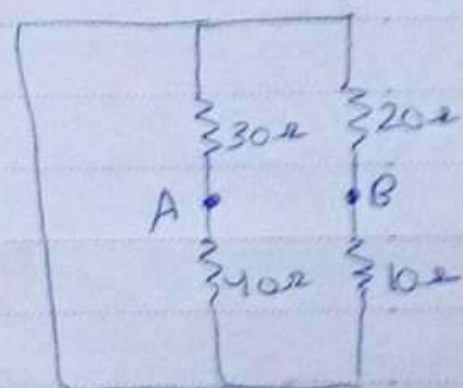 30Ω 20Ω
A B
40Ω 10Ω